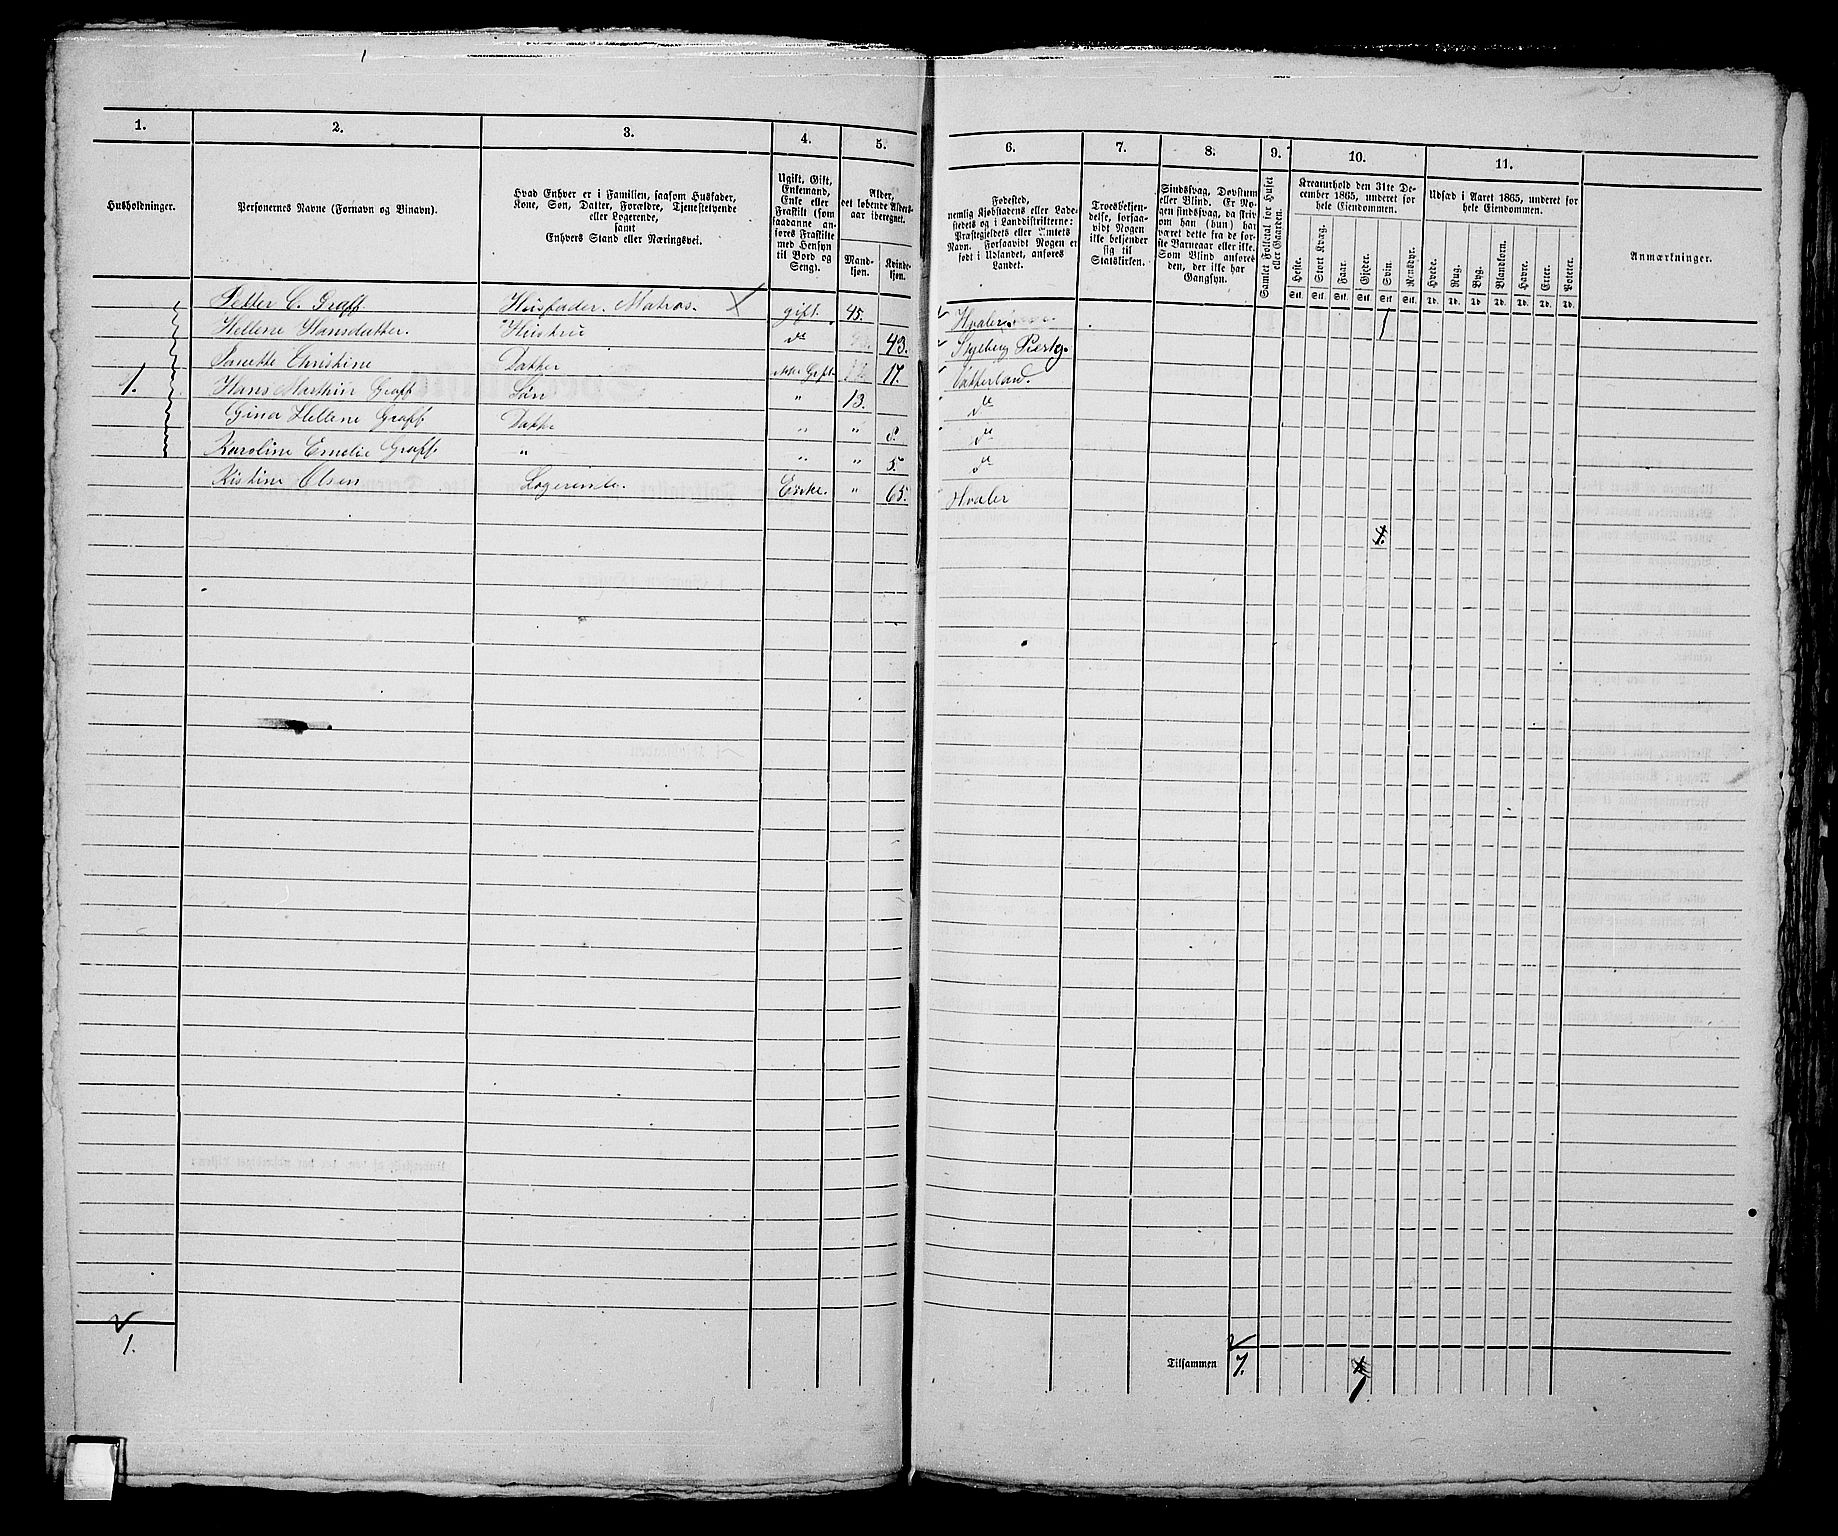 1. 2. 3. 4. 5. 6. 7. 8. 9. 10. 11.
Husholdninger.
Personernes Navne (Fornavn og Binavn).
Hvad Enhver er i Familien, saasom Husfader,
Kone, Søn, Datter, Forældre, Tjenestetyende
eller Logerende,
samt
Enhvers Stand eller Næringsvei.
Ugift, Gift,
Enkemand,
Enke eller
Fraskilt (som
saadanne an-
føres Fraskilte
med Hensyn
til Bord og
Seng).
Alder,
det løbende Alders-
aar iberegnet.
Mand-
kjøn.
Kvinde-
kjøn.
Fødested,
nemlig Kjøbstadens eller Lade-
stedets og i Landdistrikterne:
Præstegjeldets eller Amtets
Navn. Forsaavidt Nogen er
født i Udlandet, anføres
Landet.
Troesbekjen-
delse, forsaa-
vidt Nogen
ikke bekjender
sig til
Statskirken.
Sindssvag, Døvstum
eller Blind. Er No-
gen sindssvag, da skriv
om han (hun) har
været dette fra de før-
ste Barneaar eller ikke.
Som Blind anføres
den, der ikke har
Gangsyn.
Samlet Folketal for Huset
eller Gaarden.
Kreaturhold den 31te De-
cember 1865, underet for
hele Eiendommen.
Heste. Stort Kvæg. Faar. Gjeder. Svin. Rensdyr.
Stk. Stk. Stk. Stk. Stk. Stk.
Udsæd i Aaret 1865, underet for
hele Eiendommen.
Hvede. Rug. Byg. Blandkorn. Havre. Erter. Poteter.
Td. Td. Td. Td. Td. Td. Td.
Anmærkninger.
Petter C. Graff Husfader. Matros. X gift. 45. Hvaler 1
Hellene Hansdatter. Hustru do 43.
Christine Datter ikke Gift 17.
1. Hans Marthin Graff Søn " 13. do
Gina Hellene Graff Datter " " 8. do
Karoline Emelie Graff " " " 5. do
Kistine Olsen Logerende. Enke. " 65. Hvaler
1.
1.
Tilsammen 7. 1